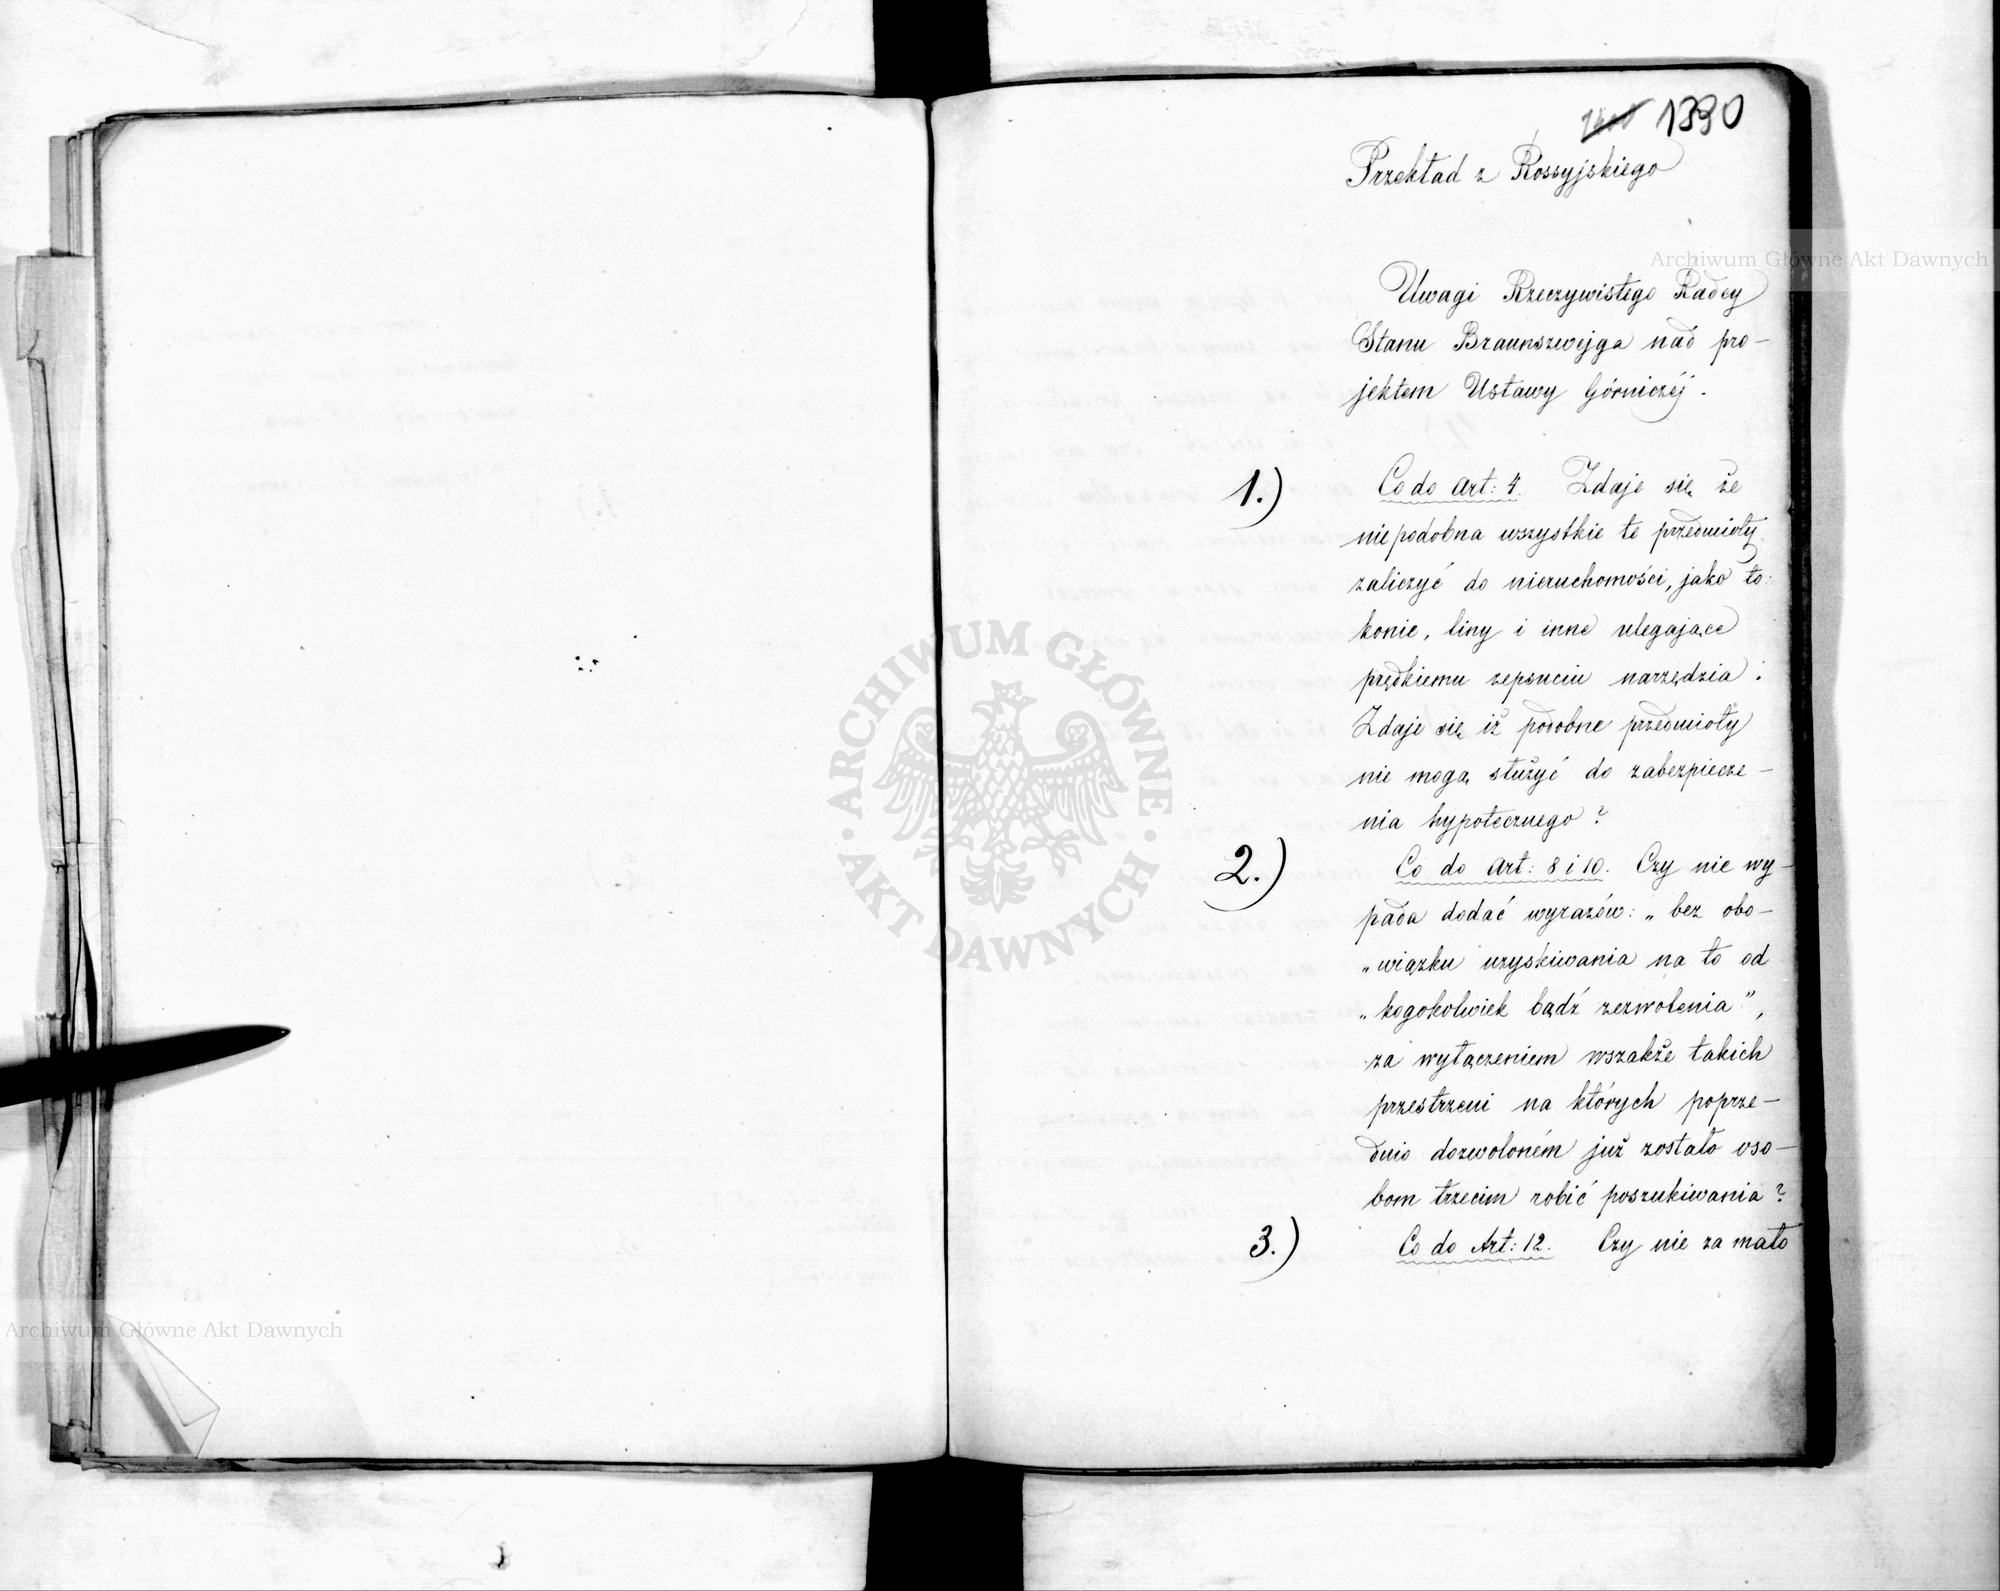 1390
Przekład z Rossyjskiego
Uwagi Rzeczywistego Radcy
Stanu Braunszwejga nad pro-
jektem Ustawy Górniczéj.
1.) Co do Art: 4. Zdaje się że
niepodobna wszystkie te przedmioty
zaliczyć do nieruchomości, jako to:
konie, liny i inne ulegające
prędkiemu zepsuciu narzędzia.
Zdaje się iż podobne przedmioty
nie mogą służyć do zabezpiecze-
nia hypotecznego?
2.) Co do Art: 8 i 10. Czy nie wy-
pada dodać wyrazów: „bez obo-
„wiązku uzyskiwania na to od
„kogokolwiek bądź zezwolenia”,
za wyłączeniem wszakże takich
przestrzeni na których poprze-
dnio dozwoloném już zostało oso-
bom trzecim robić poszukiwania?
3.) Co do Art: 12. Czy nie za mało
Archiwum Główne Akt Dawnych
ARCHIWUM GŁÓWNE · AKT DAWNYCH ·
Archiwum Główne Akt Dawnych